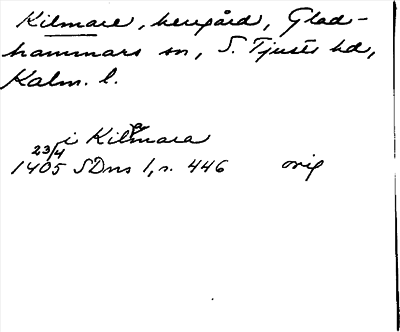 Kilmare, herrgård, Glad-
hammars sn, S. Tjusts hd,
Kalm. l.
i Kilmara
23/4
1405 SDns 1, s. 446 orig